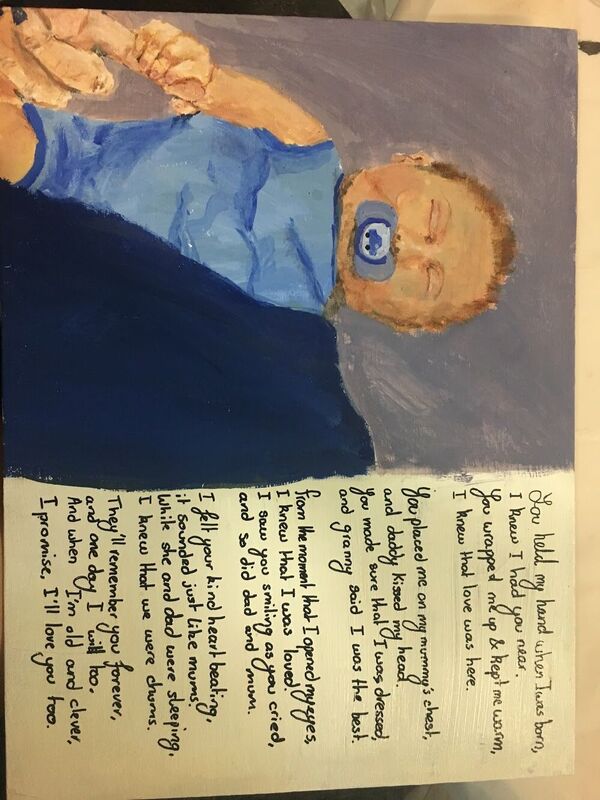 You held my hand when I was born,
I knew I had you near.
You wrapped me up & kept me warm,
I knew that love was here.
You placed me on my mummy's chest,
and daddy kissed my head.
You made sure that I was dressed,
and granny said I was the best.
from the moment that I opened my eyes,
I knew that I was loved.
I saw you smiling as you cried,
and so did dad and mum.
I felt your kind heart beating,
it sounded just like mums.
While she and dad were sleeping,
I knew that we were chums.
They'll remember you forever,
and one day I will too.
And when I'm old and clever,
I promise, I'll love you too.